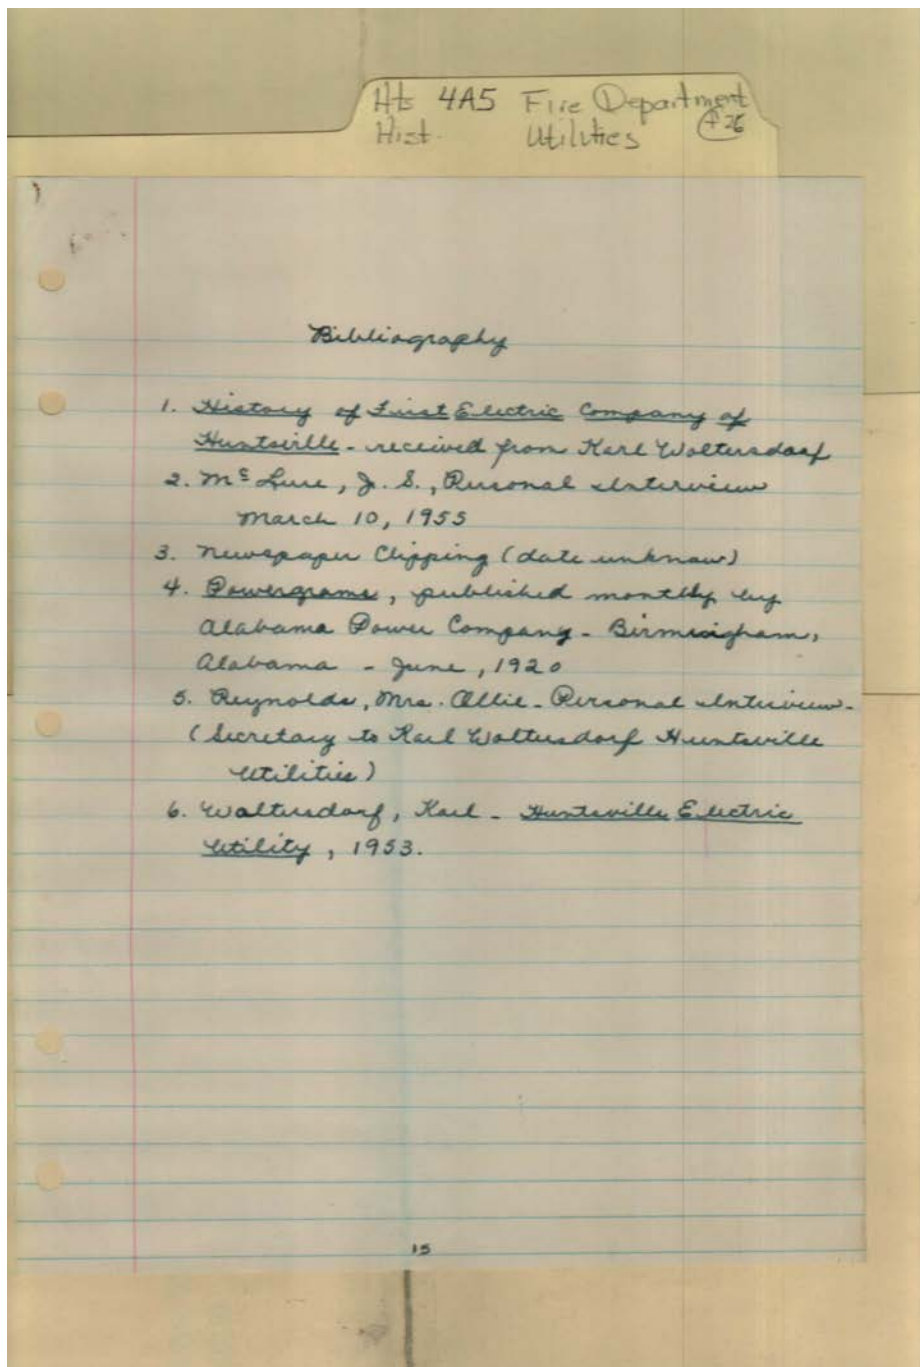 Hts 4A5 Fire Department
Hist. Utilities +26
Bibliography
1. History of First Electric Company of
Huntsville - received from Karl Woltersdorf
2. McLure, J. S., Personal Interview
March 10, 1955
3. Newspaper Clipping (date unknow)
4. Powergrams, published monthly by
Alabama Power Company - Birmingham,
Alabama - June, 1920
5. Reynolds, Mrs. Ollie - Personal Interview -
(Secretary to Karl Woltersdorf Huntsville
Utilities)
6. Woltersdorf, Karl - Huntsville Electric
Utility, 1953.
15